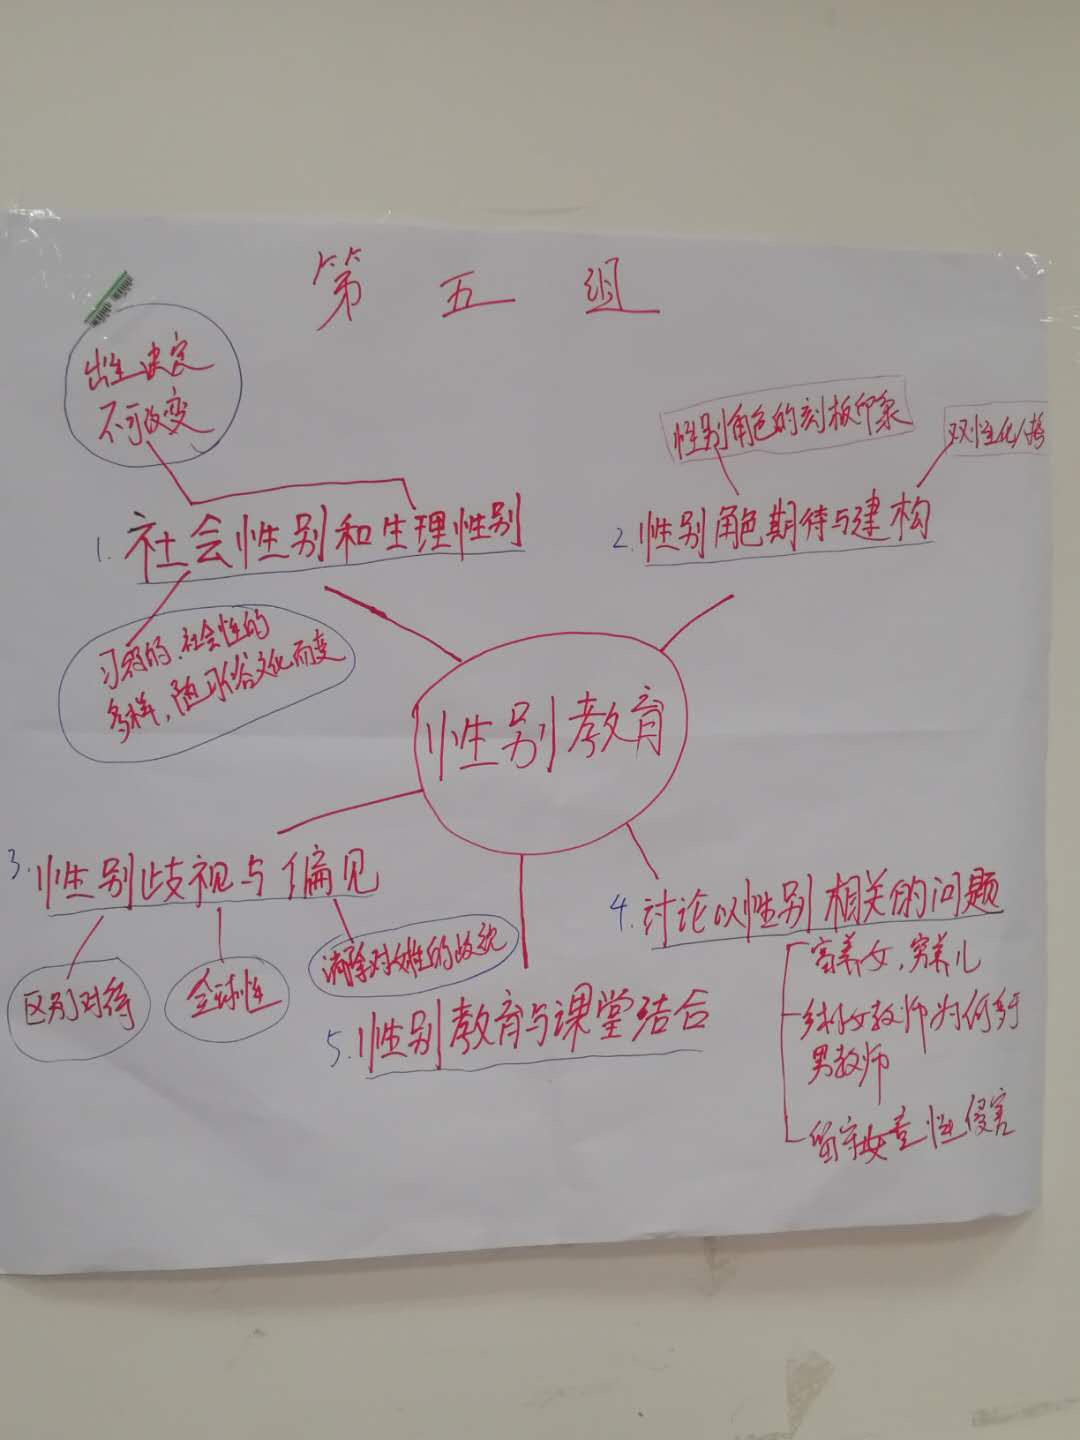 第五组
出生决定
不可改变
1. 社会性别和生理性别
习得的、社会性的
多样，随习俗文化而变
性别角色的刻板印象
双性化人格
2. 性别角色期待与建构
性别教育
3. 性别歧视与偏见
区别对待
全球性
消除对女性的歧视
4. 讨论以性别相关的问题
富养女，穷养儿
乡村女教师为何多于
男教师
留守女童性侵害
5. 性别教育与课堂结合